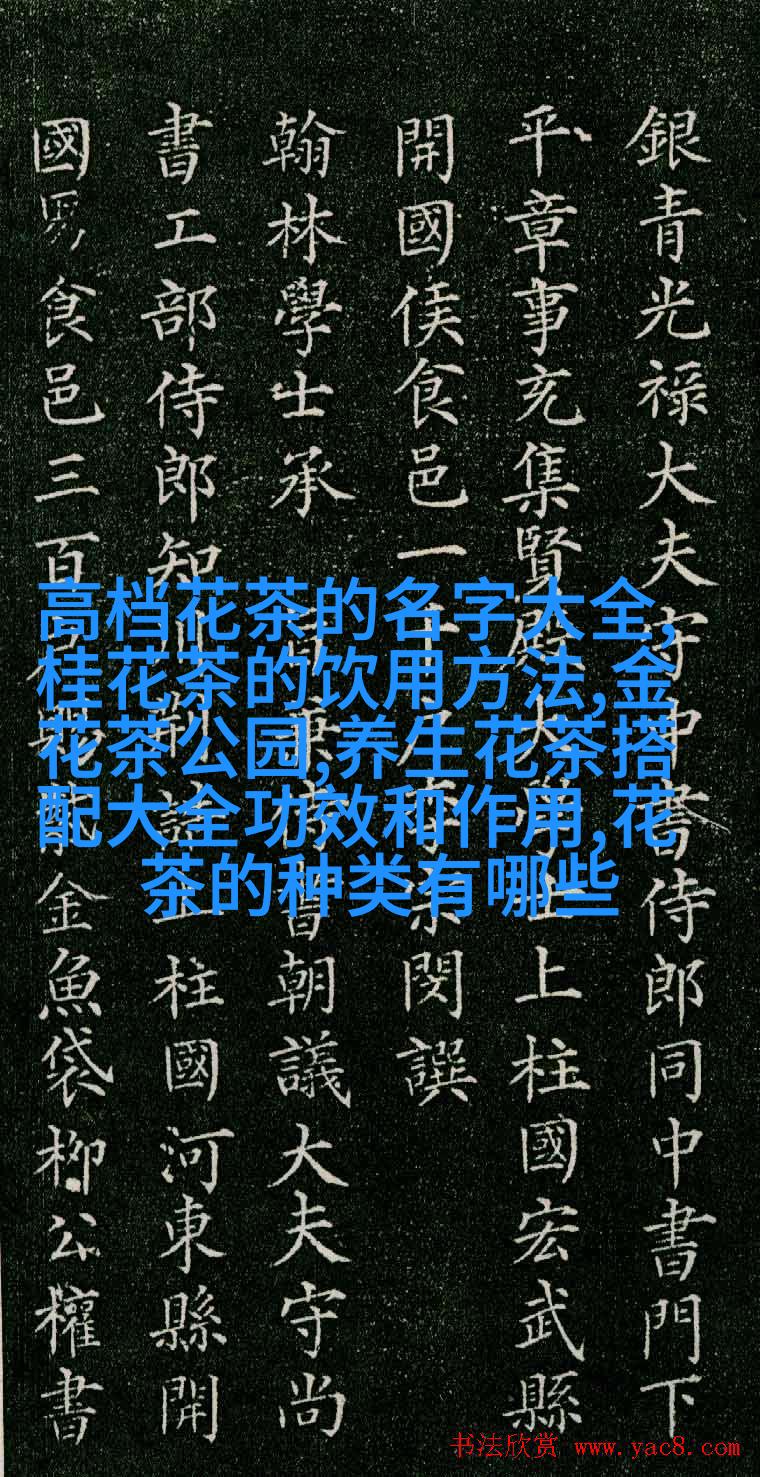 銀青光禄大夫守中書侍郎同中書門下
平章事充集賢殿大學士上柱國宏武縣
開國侯食邑一千戶李宗閔譔
翰林學士承旨兼侍書朝議大夫守尚
書工部侍郎知制誥上柱國河東縣開
國男食邑三百戶賜紫金魚袋柳公權書
高档花茶的名字大全,
桂花茶的饮用方法,金
花茶公园,养生花茶搭
配大全功效和作用,花
茶的种类有哪些
书法欣赏 www.yac8.com